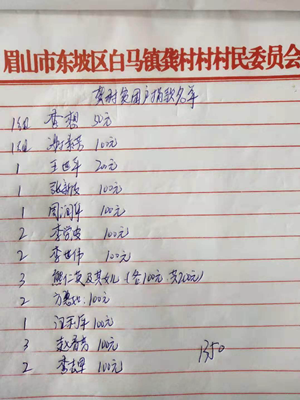 眉山市东坡区白马镇龚村村村民委员会
贫困户捐款名单
1组 李想 50元
1组 100元
1 王世军 200元
1 张 100元
1 周润年 100元
2 李 100元
2 李世伟 100元
3 熊仁英及其女儿(各100元 共200元)
2 方 100元
1 100元
3 赵 100元
2 李 100元
1350